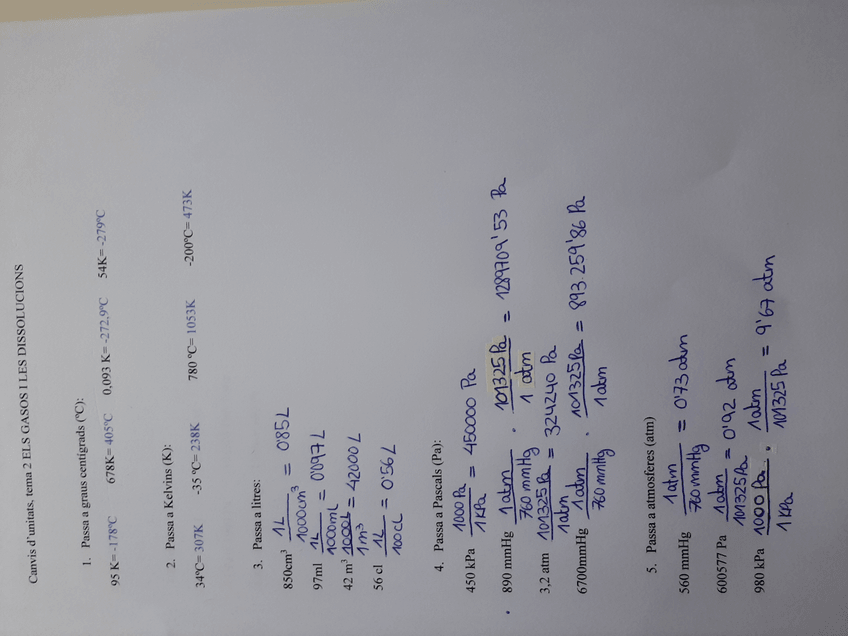 Canvis d'unitats, tema 2 ELS GASOS I LES DISSOLUCIONS
1. Passa a graus centígrads (ºC):
95 K= -178ºC 678K= 405ºC 0,093 K= -272,9ºC 54K= -279ºC
2. Passa a Kelvins (K):
34ºC= 307K -35 ºC= 238K 780 ºC= 1053K -200ºC= 473K
3. Passa a litres:
850cm³ 1L / 1000cm³ = 0'85L
97ml 1L / 1000ml = 0'097L
42 m³ 1000L / 1m³ = 42000 L
56 cl 1L / 100cl = 0'56 L
4. Passa a Pascals (Pa):
450 kPa 1000 Pa / 1 KPa = 450000 Pa
890 mmHg 1 atm / 760 mmHg · 101325 Pa / 1 atm = 1289709'53 Pa
3,2 atm 101325 Pa / 1 atm = 324240 Pa
6700mmHg 1 atm / 760 mmHg · 101325 Pa / 1 atm = 893.259'86 Pa
5. Passa a atmosferes (atm)
560 mmHg 1 atm / 760 mmHg = 0'73 atm
600577 Pa 1 atm / 101325 Pa = 0'92 atm
980 kPa 1000 Pa / 1 KPa · 1 atm / 101325 Pa = 9'67 atm